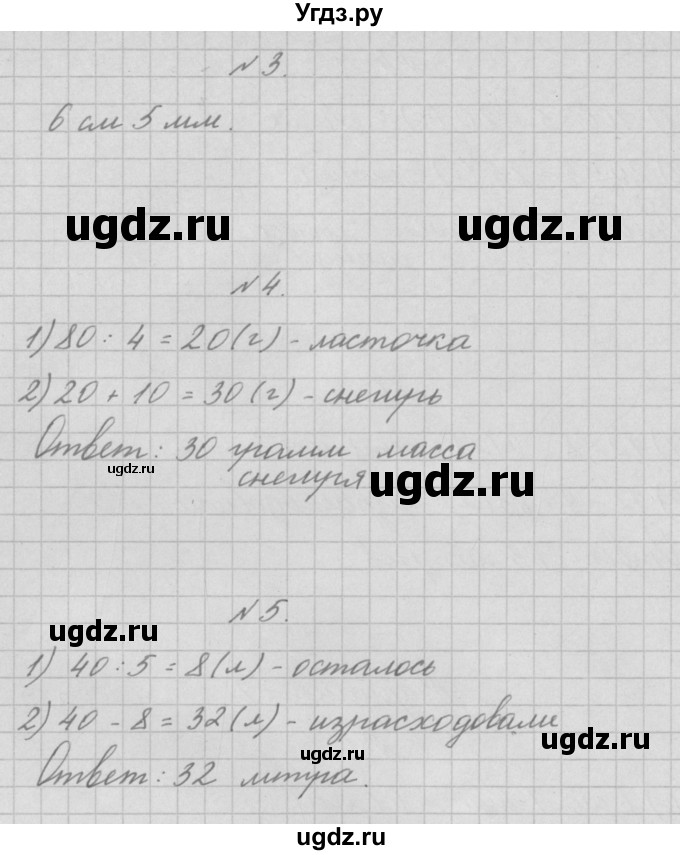 Угдз.ру
№ 3.
6 см 5 мм.
ugdz.ru ugdz.ru
№ 4.
1) 80 : 4 = 20 (г) - ласточка
2) 20 + 10 = 30 (г) - снегирь
Ответ: 30 грамм масса
ugdz.ru
снегиря ugdz.ru
№ 5.
ugdz.ru
1) 40 : 5 = 8 (л) - осталось
2) 40 - 8 = 32 (л) - израсходовали
ugdz.ru ugdz.ru
Ответ: 32 литра.
ugdz.ru